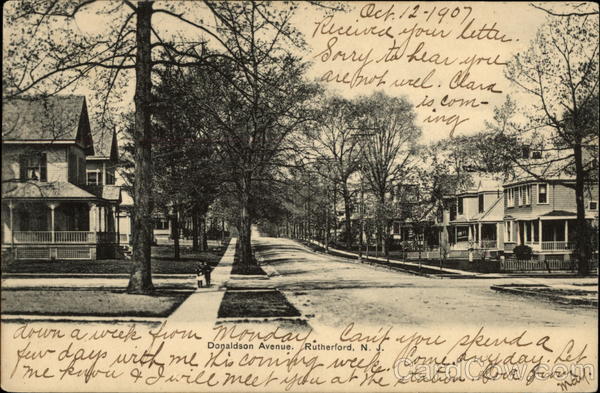 Oct. 12 - 1907
Received your letter.
Sorry to hear you
are not well. Clara
is com-
ing
down a week from Monday. Can't you spend a
few days with me this coming week. Come any day. Let
me know & I will meet you at the station. Love from
May.
Donaldson Avenue. Rutherford, N. J.
CardCow.com